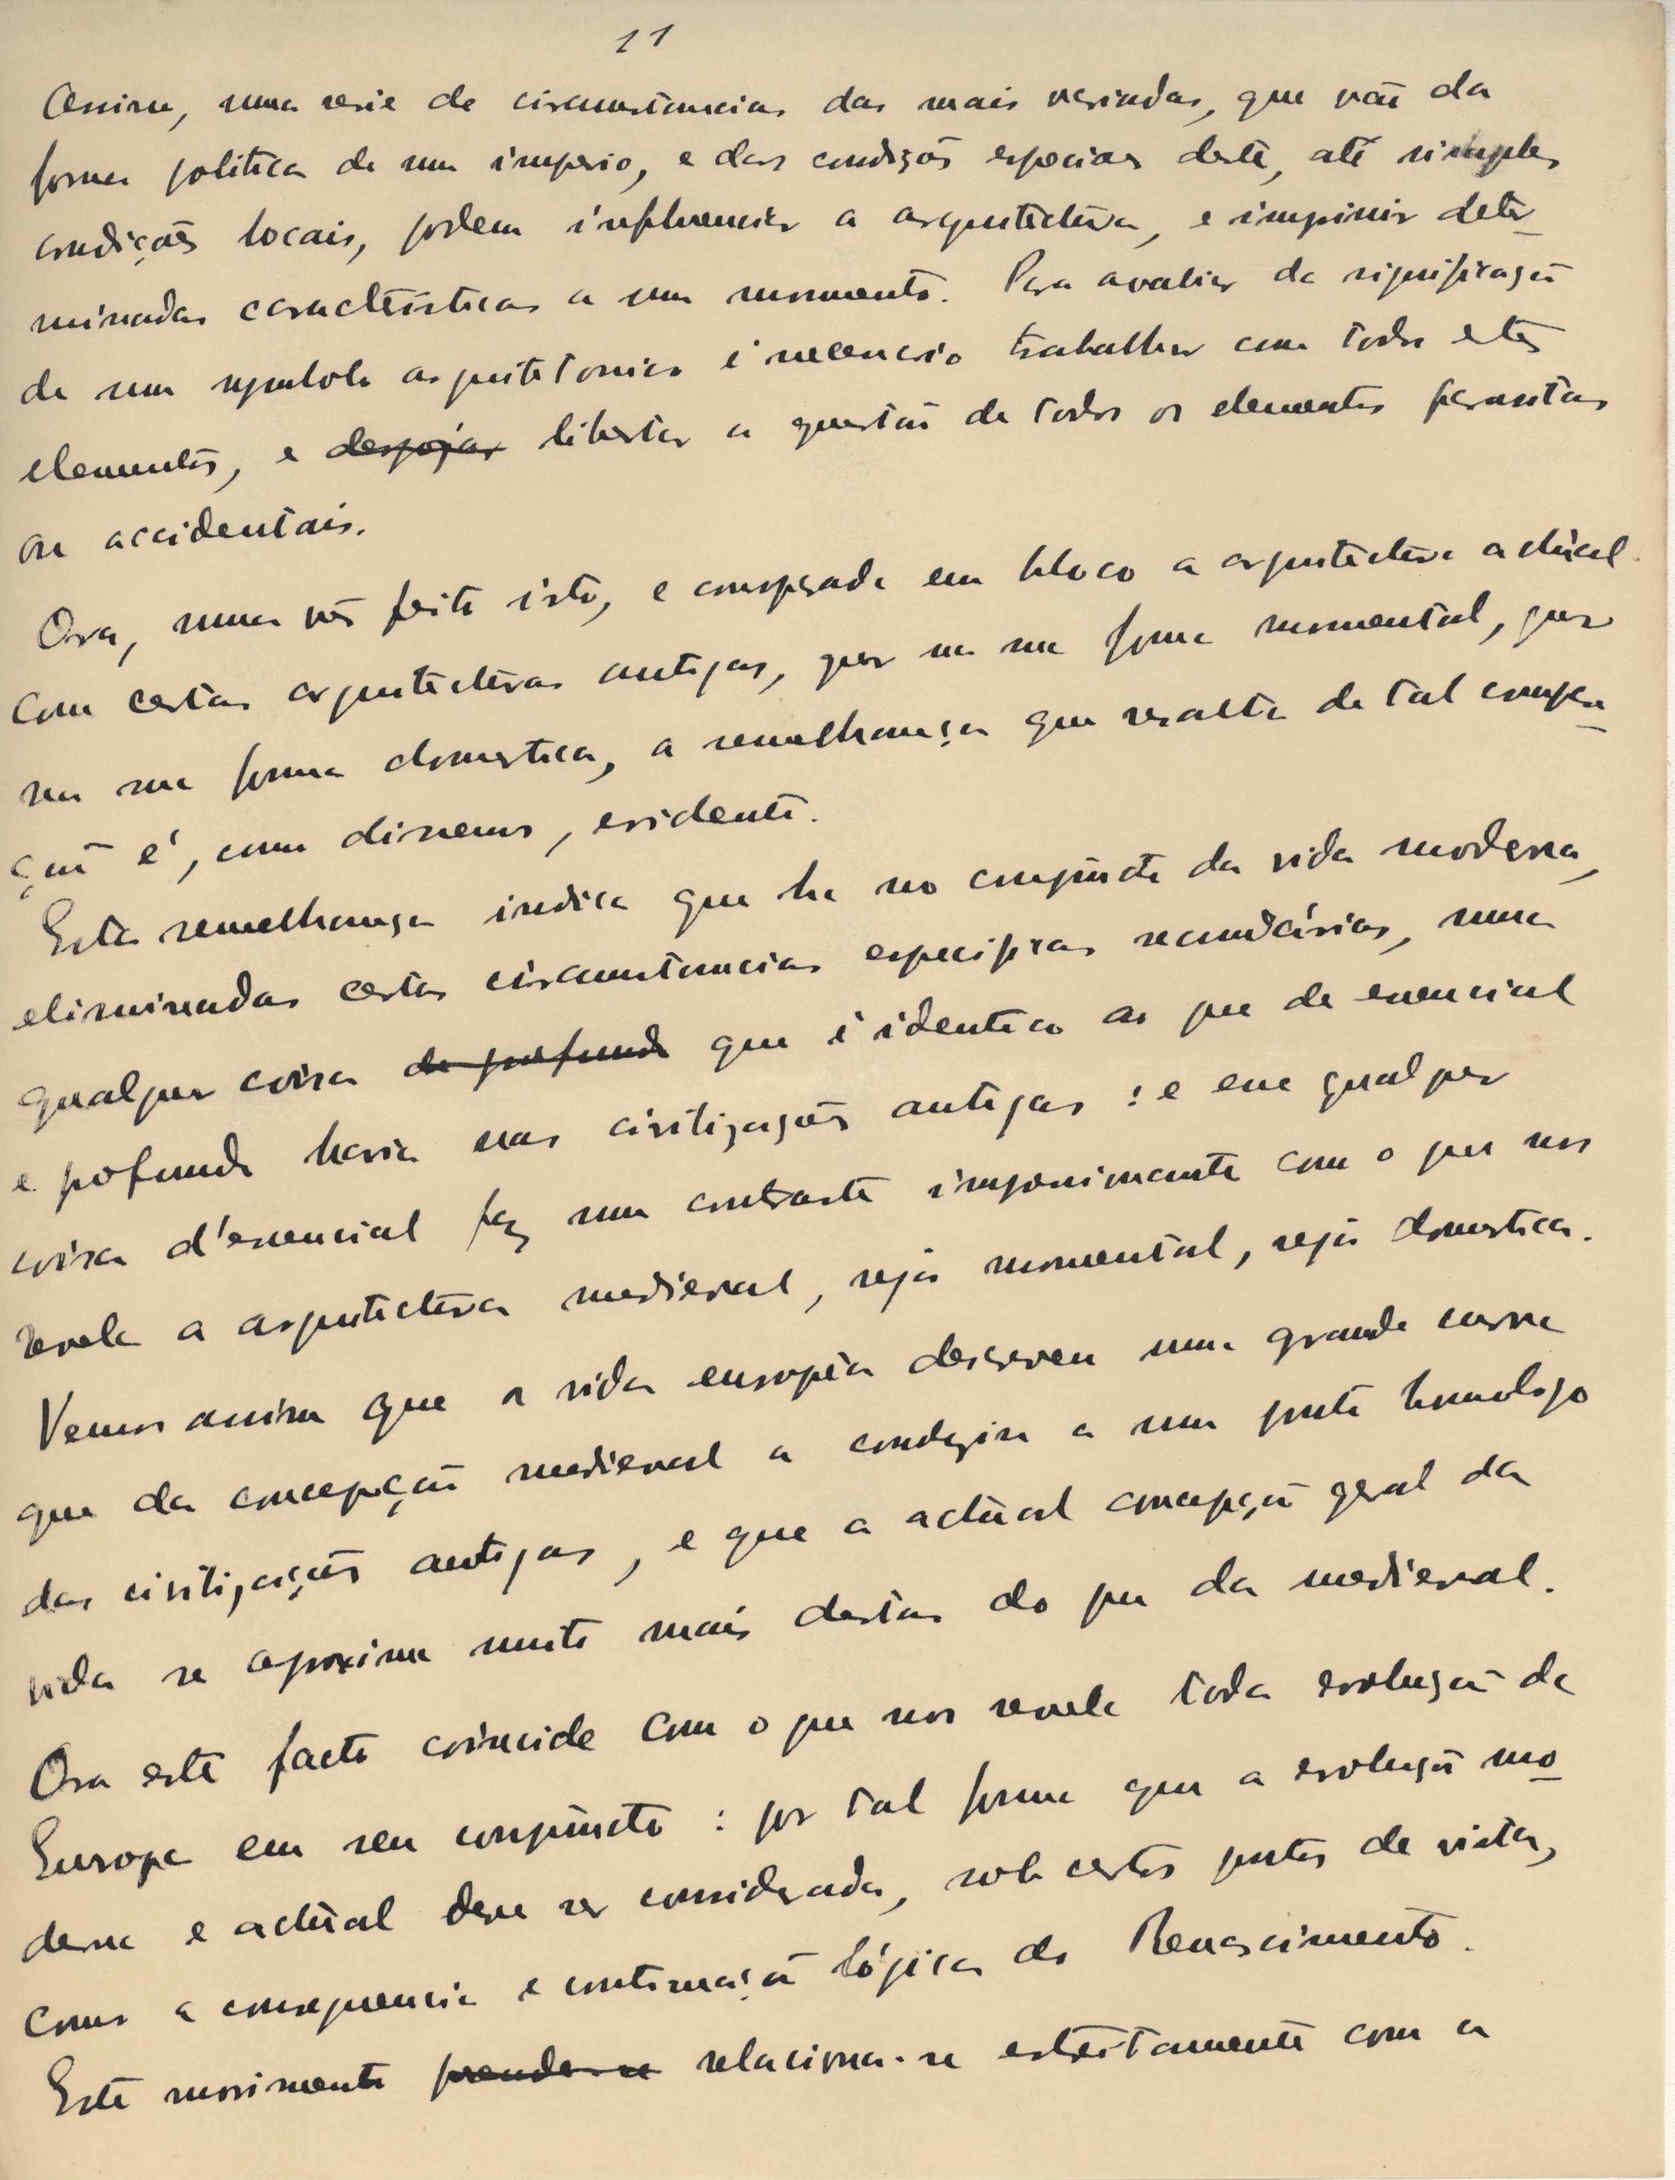 11
Assim, uma serie de circumstancias das mais variadas, que vão da
forma politica de um imperio, e das condições especiais deste, até simples
condições locais, podem influenciar a arquitectura, e imprimir deter-
minadas caracteristicas a um momento. Para avaliar da significação
de um symbolo arquitetonico é necessario trabalhar com todos estes
elementos, e despojar libertar a questão de todos os elementos parasitas
ou accidentais.
Ora, uma vez feito isto, e comparada em bloco a arquitectura actual
com certas arquitecturas antigas, quer na sua forma momental, quer
na sua forma domestica, a semelhança que resalta de tal compara-
ção é, como dissemos, evidente.
Esta semelhança indica que ha no conjuncto da vida moderna,
eliminadas certas circumstancias especificas secundárias, uma
qualquer coisa de profundo que é identico ao que de essencial
e profundo havia nas civilizações antigas : e esse qualquer
coisa d'essencial faz um contraste impressionante com o que nos
revela a arquitectura medieval, seja momental, seja domestica.
Vemos assim que a vida européa descreveu uma grande curva
que da concepção medieval a conduziu a um ponto homologo
das civilizações antigas, e que a actual concepção geral da
vida se aproxima muito mais destas do que da medieval.
Ora este facto coincide com o que nos revela toda evolução da
Europa em seu conjuncto : por tal forma que a evolução mo-
derna e actual deve ser considerada, sob certos pontos de vista,
como a consequencia e continuação lógica do Renascimento.
Este movimento prende-se relaciona-se estreitamente com a